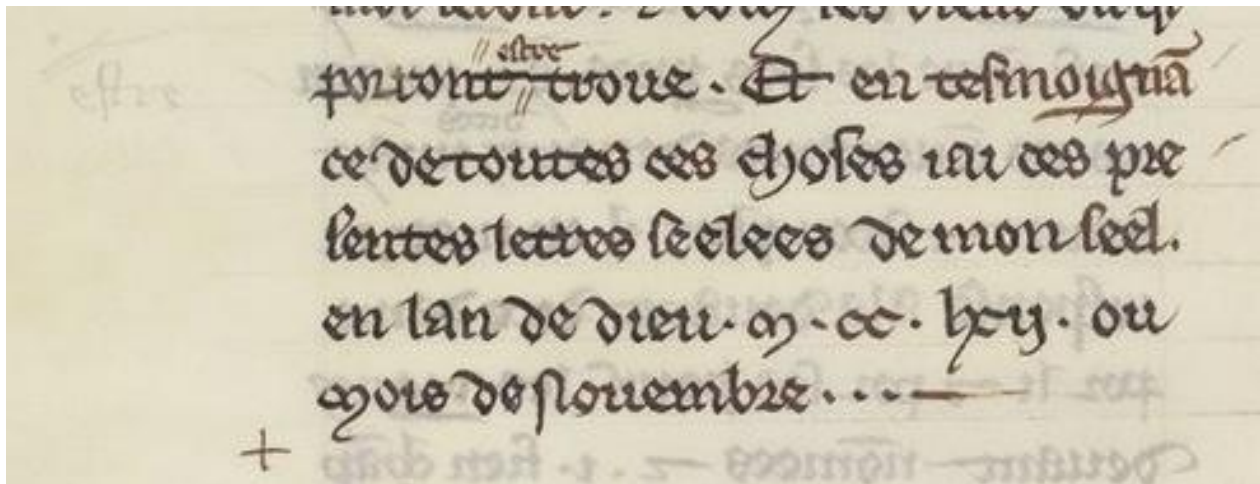 estre
porront trouer. Et en tesmoignā
ce de toutes ces choses iai ces pre
sentes lettres seelees de mon seel.
en lan de dieu. m. cc. lxij. ou
mois de nouembre...